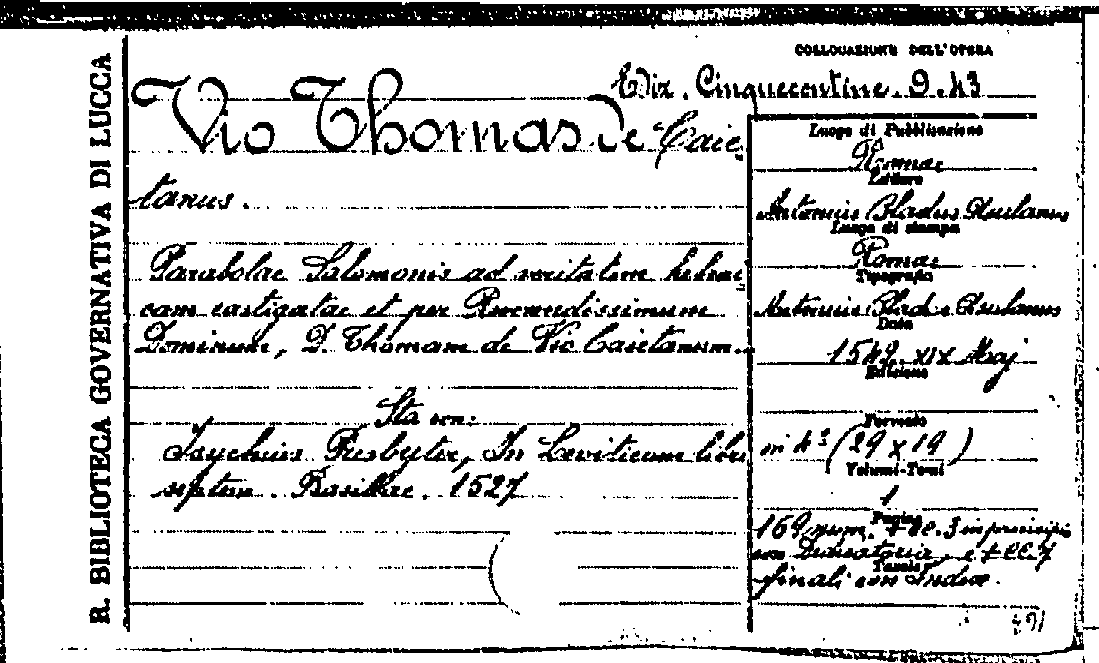 R. BIBLIOTECA GOVERNATIVA DI LUCCA
COLLOCAZIONE DELL'OPERA
Ediz. Cinquecentine. 9.43
Vio Thomas De Caie
tanus.
Parabolae Salomonis ad veritatem hebrai
cam castigatae et per Reverendissimum
Dominum, D. Thomam de Vio Caietanum.
Sta con:
Isychius Presbyter, In Leviticum libri
septem. Basileae. 1527
Luogo di Pubblicazione
Romae
Editore
Antonius Bladus Asulanus
Luogo di stampa
Romae
Tipografia
Antonius Blad Asulanus
Data
1542. XIX Maj
Edizione
Formato
in 4° (29 x 19)
Volumi-Tomi
1
Pagine
169 num. + cc. 3 in principio
con Dedicatoria, e + cc. 7
Tavole
finali con Indice.